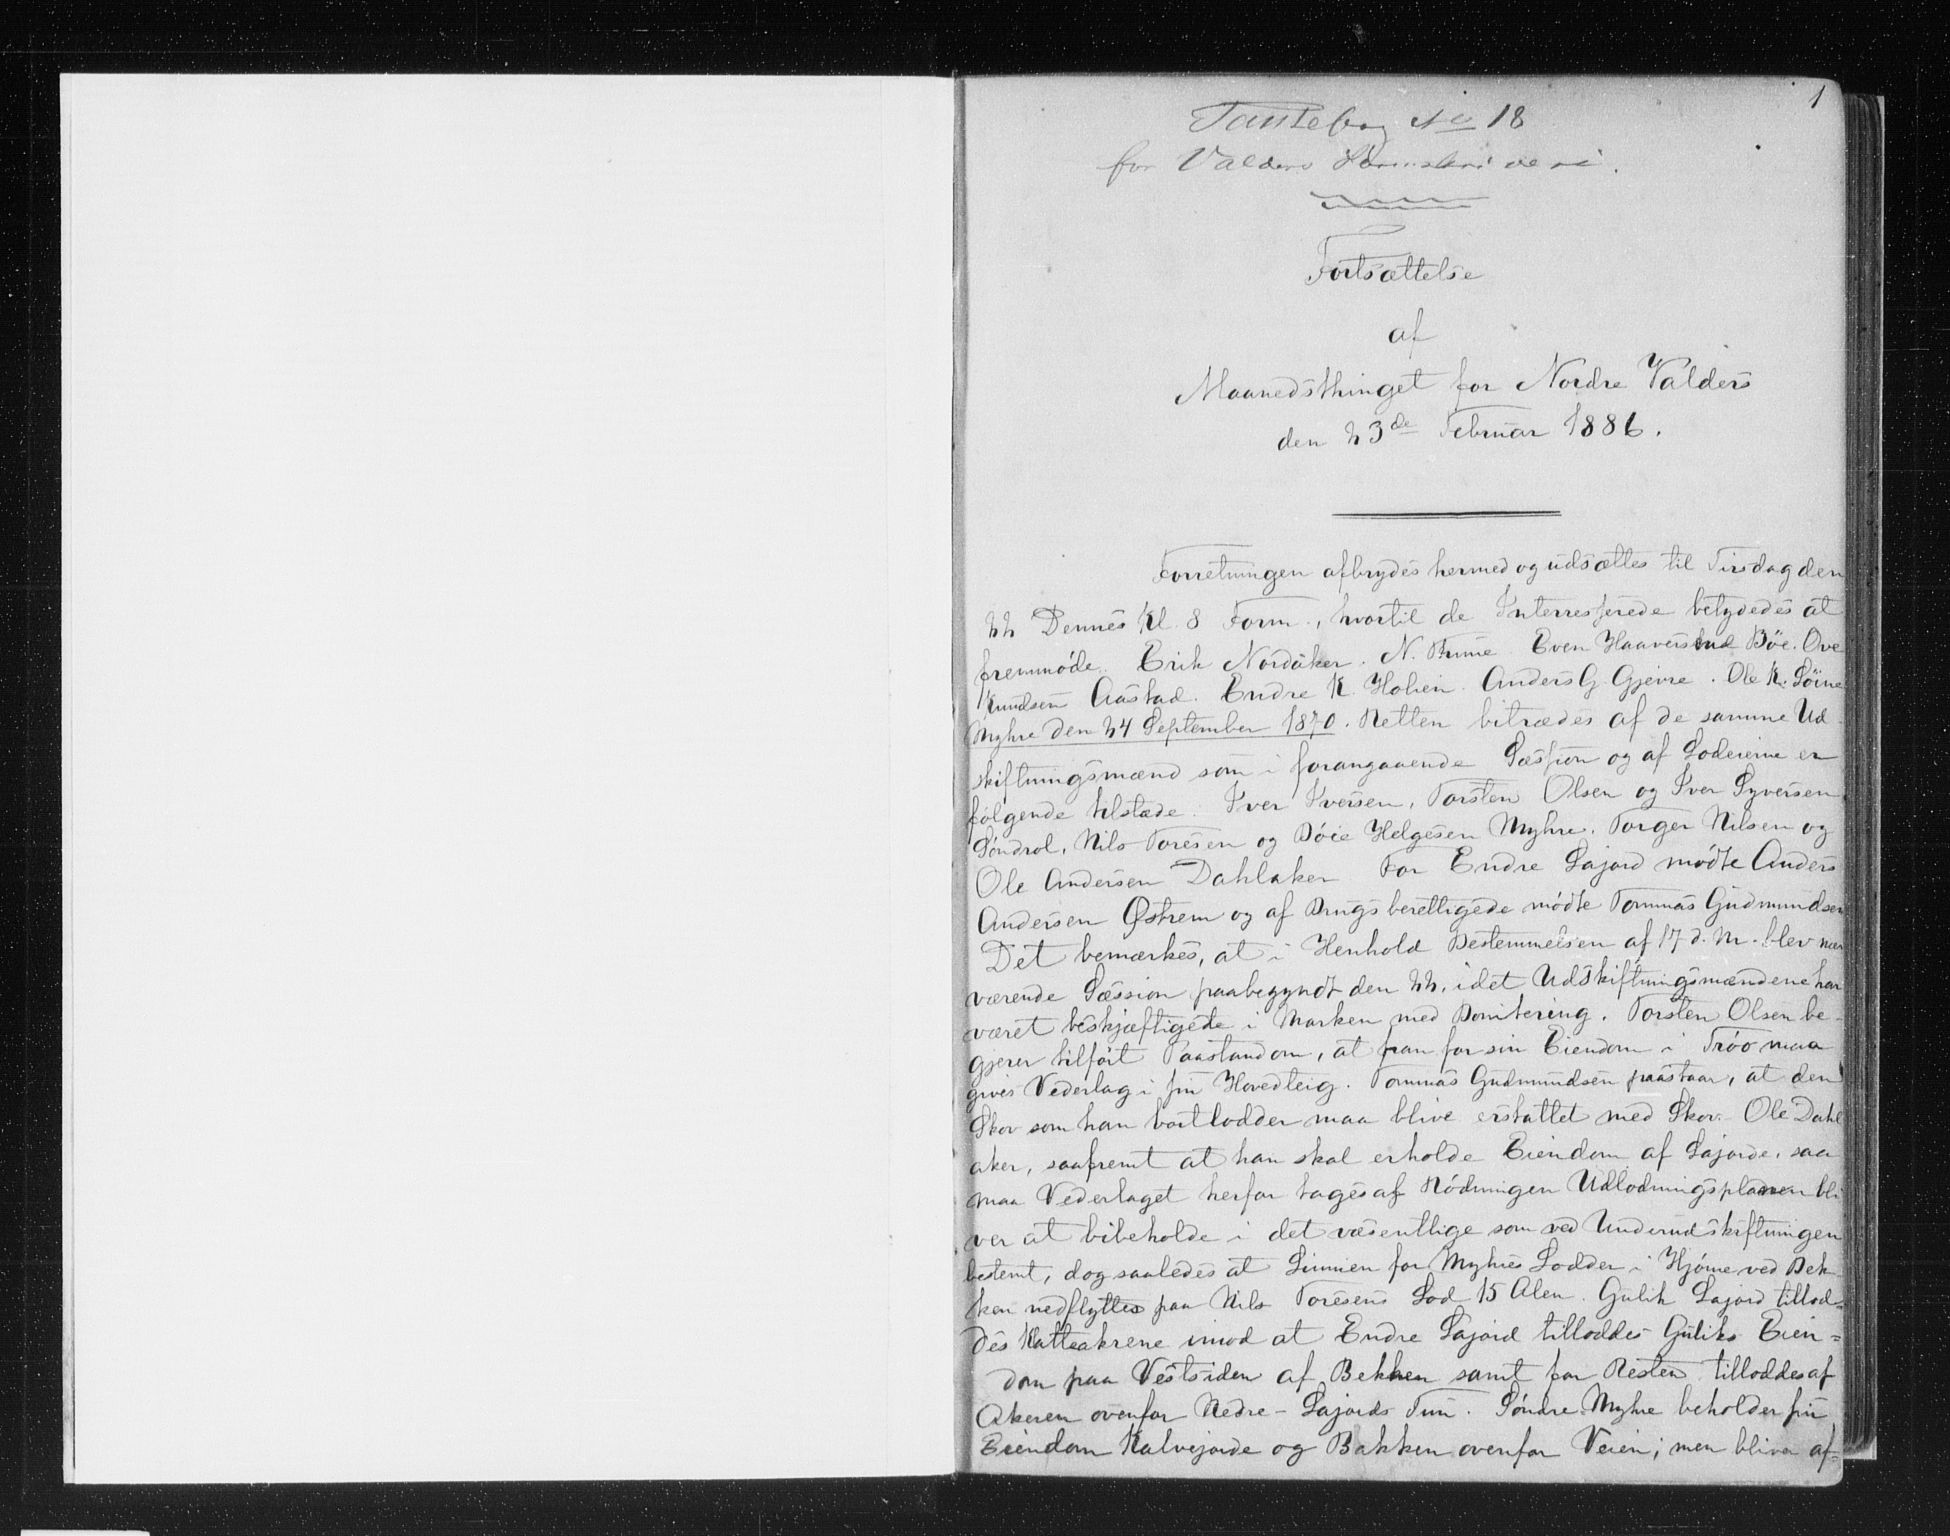 1
Pantebog No 18
for Valders Sorenskriveri.
Fortsættelse
af
Maanedsthinget for Nordre Valders
den 23de Februar 1886.
Forretningen afbrydes hermed og udsættes til Tirsdag den
22 Dennes Kl. 8 Form., hvortil de Interresserede betydedes at
fremmøde. Erik Nordaker. N. Even Haaverstad Bøe. Ove
Knudsen Aastad. Endre K. Holien. Anders G. Gjevre. Ole K. Söine
Myhre den 24 September 1870. Retten bitrædes af de samme Ud-
skiftningsmænd som i forangaaende Sæssion og af Lodeierne er
følgende tilstæde. Iver Iversen, Torsten Olsen og Iver Syversen
Söndrol, Nils Toresen og Böie Helgesen Myhre. Torger Nilsen og
Ole Andersen Dahlaker. For Endre Lajord mødte Anders
Andersen Østrem og af Brugsberettigede mødte Tommas Gudmundsen
Det bemærkes, at i Henhold Bestemmelsen af 17 d. M. blev nær
værende Sæssion paabegyndt den 22. idet Udskiftningsmændene har
været beskjæftigede i Marken med Bonitering. Torsten Olsen be-
gjerer tilført Paastand om, at han for sin Eiendom i Tröo maa
gives Vederlag i sin Hovedteig. Tommas Gudmundsen paastaar, at den
Skov som han bortlodder maa blive erstattet med Skov. Ole Dahl
aker, saafremt at han skal erholde Eiendom af Lajorde, saa
maa Vederlaget herfor tages af Rödningen Udlodningsplanen bli
ver at bibeholde i det væsentlige som ved Underudskiftningen
bestemt, dog saaledes at Linnien for Myhres Lodder i Hjörne ved Bek
ken nedflyttes paa Nils Toresens Lod 15 Alen. Gulik Lajord tillod-
des Katteakrene imod at Endre Lajord tilloddes Guliks Eien-
dom paa Vestsiden af Bekken samt for Resten tilloddes af
Akeren ovenfor Nedre-Lajords Tun. Söndre Myhre beholder sin
Eiendom Kalvejorde og Bakken ovenfor Veien; men bliver af-